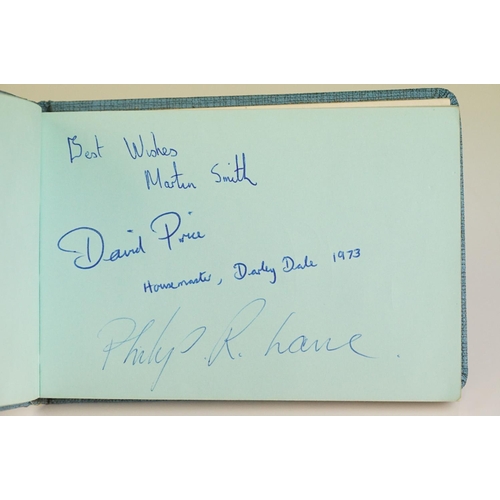 Best Wishes
Martin Smith
David Price
Housemaster, Darley Dale 1973
Philip. R. Lane.